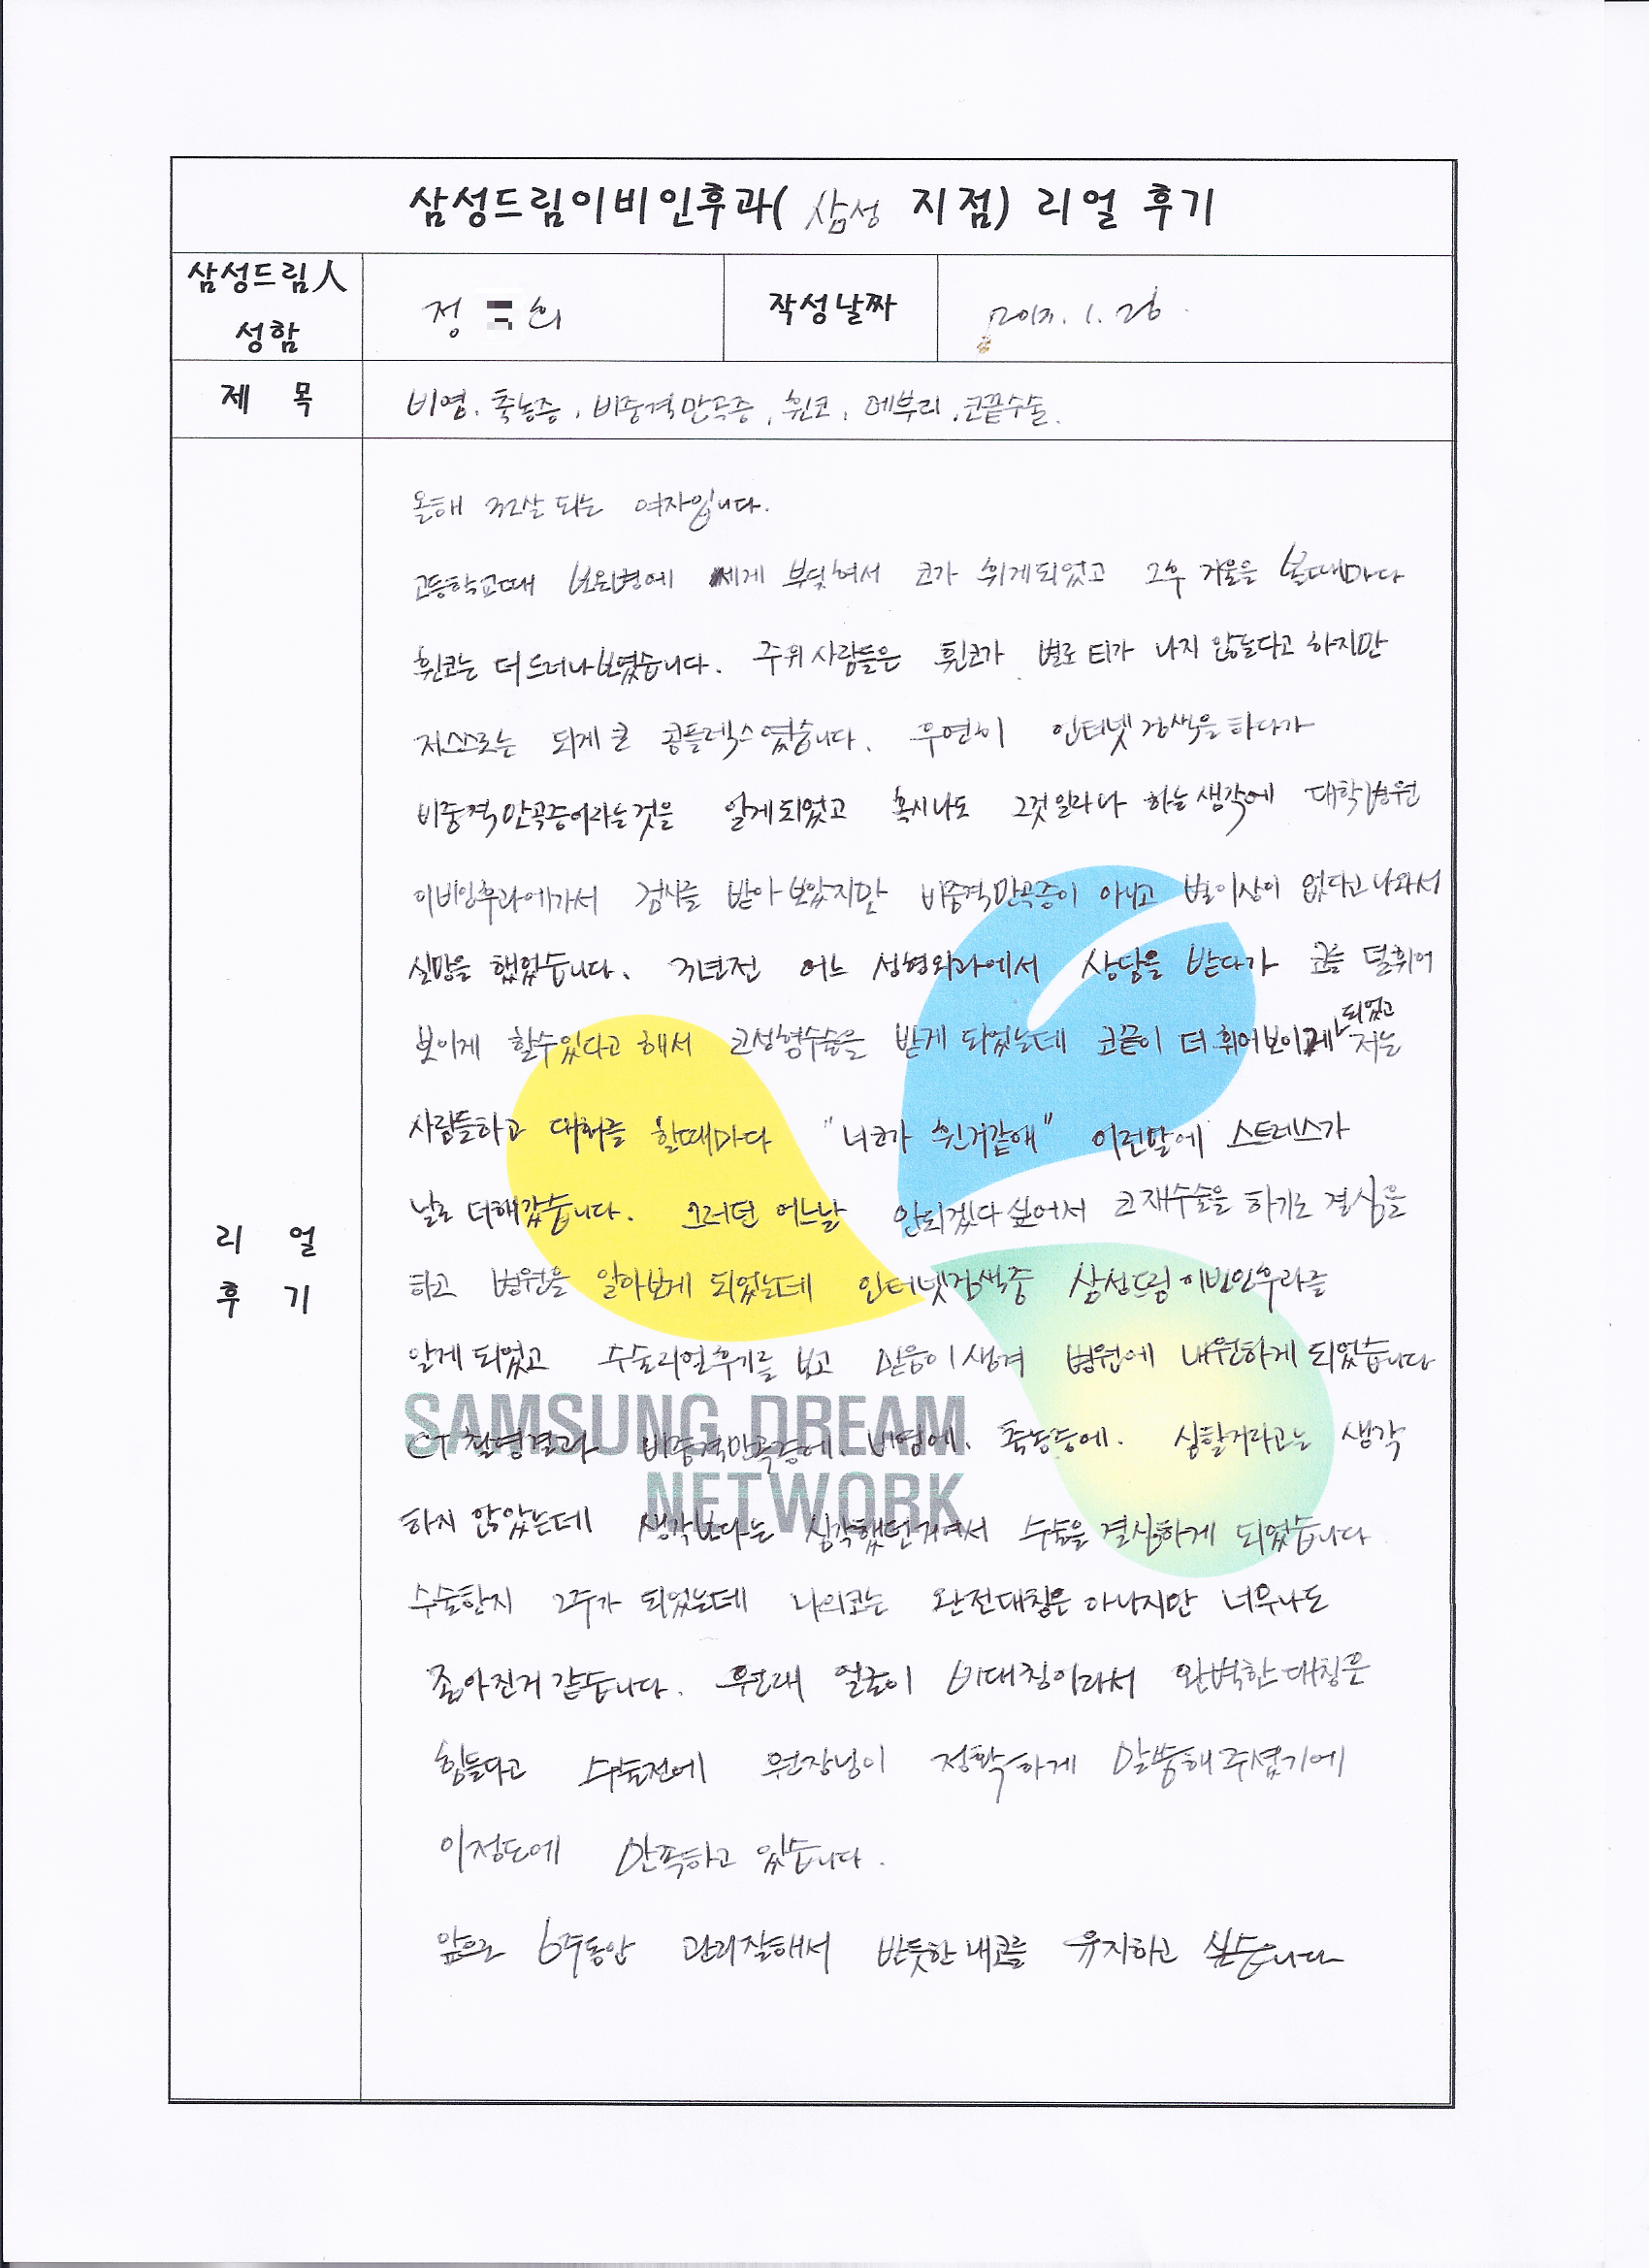 삼성드림이비인후과( 삼성 지점) 리얼 후기
삼성드림人 성함
정 희
작성날짜
1. 26.
제 목
비염. 축농증, 비중격만곡증, 휜코, 매부리, 코끝수술.
리 얼 후 기
올해 32살 되는 여자입니다.
고등학교때 세게 부딪혀서 코가 휘게되었고 그후 거울을 볼때마다
휜코는 더 드러나보였습니다. 주위사람들은 휜코가 별로 티가 나지 않는다고 하지만
저스스로는 되게 큰 콤플렉스였습니다. 우연히 인터넷검색을하다가
비중격만곡증이라는것을 알게되었고 혹시나도 그것일라나 하는생각에 대학병원
이비인후과에가서 검사를 받아보았지만 비중격만곡증이 아니고 별이상이 없다고나와서
실망을 했었습니다. 3년전 어느 성형외과에서 상담을 받다가 코를 덜휘어
보이게 할수있다고 해서 코성형수술을 받게 되었는데 코끝이 더 휘어보이게 되었고 저는
사람들하고 대화를 할때마다 "너코가 휜거같애" 이런말에 스트레스가
날로 더해갔습니다. 그러던 어느날 안되겠다싶어서 코재수술을 하기로 결심을
하고 병원을 알아보게 되었는데 인터넷검색중 삼성드림이비인후과를
알게되었고 수술리얼후기를 보고 믿음이생겨 병원에 내원하게되었습니다
CT촬영결과 비중격만곡증에. 비염에. 축농증에. 심할거라고는 생각
하지 않았는데 생각보다는 심각했던거여서 수술을결심하게 되었습니다
수술한지 2주가 되었는데 나의코는 완전대칭은아니지만 너무나도
좋아진거 같습니다. 원래 얼굴이 비대칭이라서 완벽한대칭은
힘들다고 수술전에 원장님이 정확하게 말씀해주셨기에
이정도에 만족하고 있습니다.
앞으로 6주동안 관리잘해서 반듯한내코를 유지하고 싶습니다
SAMSUNG DREAM
NETWORK